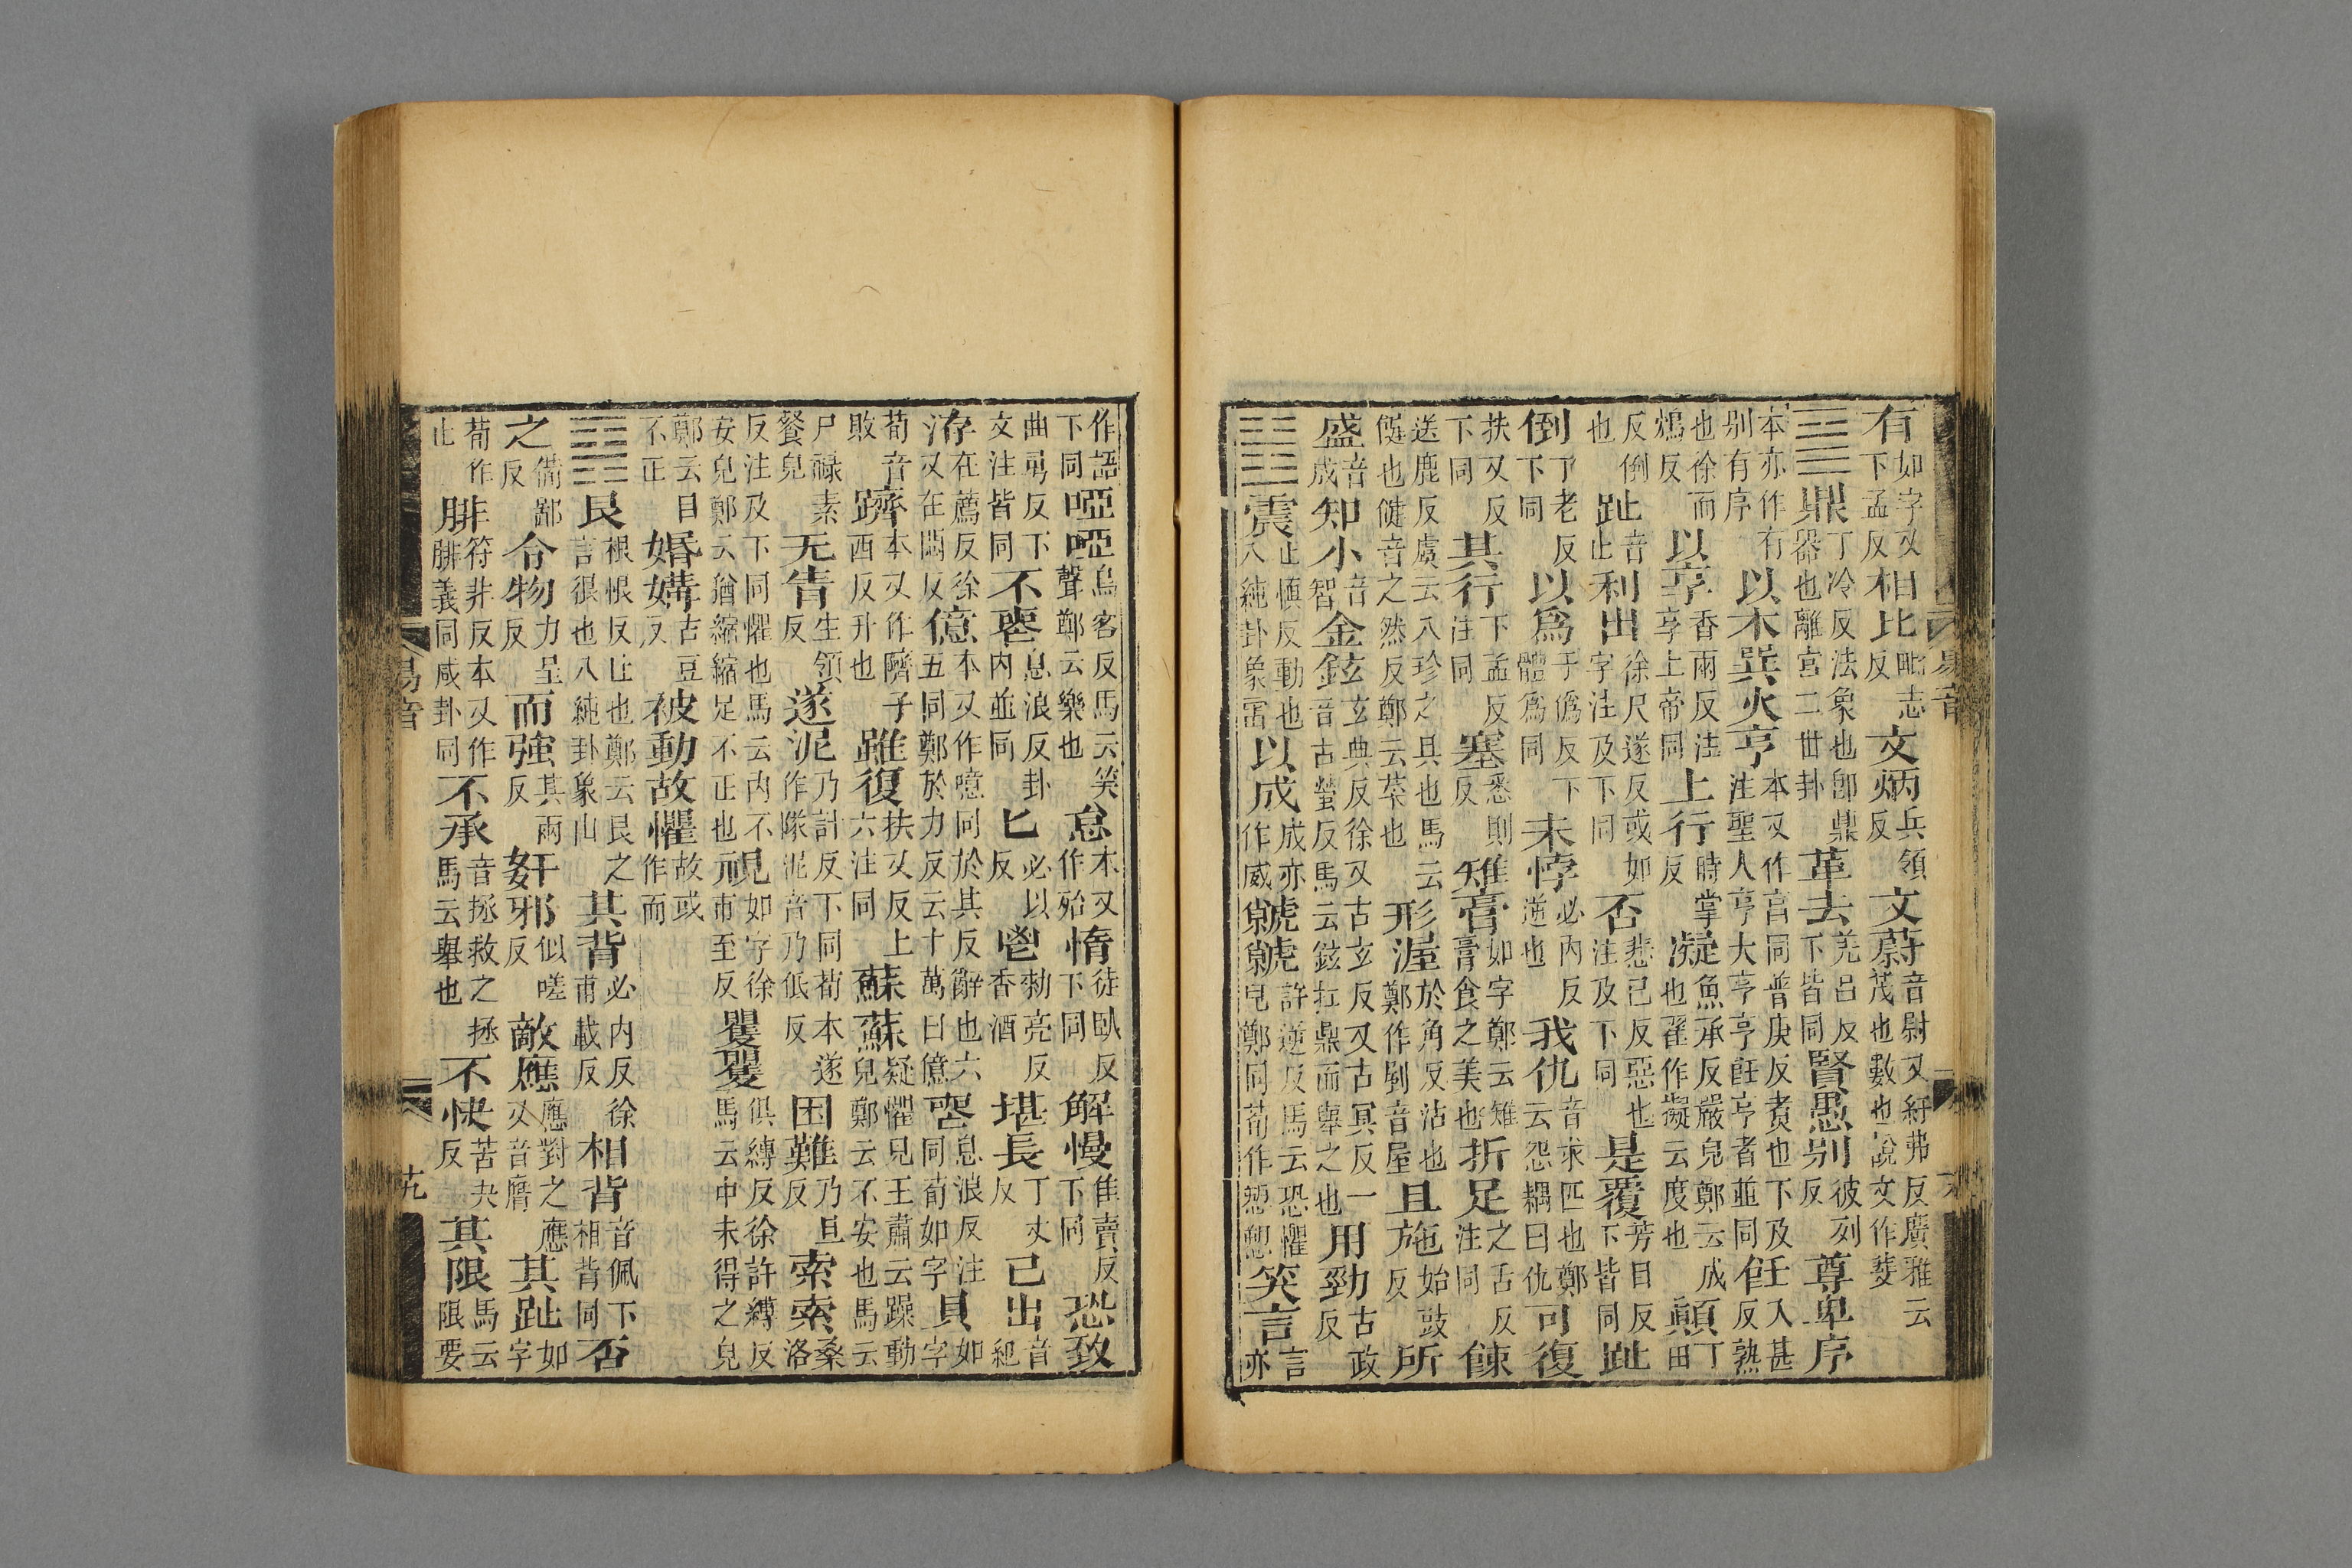 有如字又下孟反相比毗志反文炳兵領反文蔚音尉又紆弗反廣雅云茂也數也說文作斐
䷱鼎丁冷反法象也卽鼎器也離宮二世卦革去羌呂反下皆同賢愚别彼列反尊卑序
本亦作有别有序以木巽火亨本又作亯同普庚反煑也下及注聖人亨大亨亨飪亨者並同飪入甚反熟
也徐而鴆反以享香兩反注享上帝同上行時掌反凝魚承反嚴皃鄭云成也翟作擬云度也顚丁田
反倒也趾音止利出徐尺遂反或如字注及下同否悲已反惡也注及下同是覆芳目反下皆同趾
倒丁老反下同以爲于僞反下體爲同未悖必內反逆也我仇音求匹也鄭云怨耦曰仇可復
扶又反下同其行下孟反注同塞悉則反雉膏如字鄭云雉膏食之美也折足之舌反注同餗
送鹿反虞云八珍之具也馬云𩜾也𩜾音之然反鄭云菜也形渥於角反沾也鄭作剭音屋且施始豉反所
盛音成知小音智金鉉玄典反徐又古玄反又古冥反一音古螢反馬云鉉扛鼎而舉之也用勁古政反
䷲震止愼反動也八純卦象雷以成成亦作威虩虩許逆反馬云恐懼皃鄭同荀作愬愬笑言言亦
作語下同啞啞烏客反馬云笑聲鄭云樂也怠本又作殆惰徒臥反下同解慢隹賣反下同恐致
曲勇反下文注皆同不喪息浪反卦內並同匕必以反鬯勑亮反香酒堪長丁丈反己出音紀
洊在薦反徐又在悶反億本又作噫同於其反辭也六五同鄭於力反云十萬曰億喪息浪反注同荀如字貝如字
荀音敗躋本又作隮子西反升也雖復扶又反上六注同蘇蘇疑懼皃王肅云躁動皃鄭云不安也馬云
尸祿素餐皃无眚生領反遂泥乃計反下同荀本遂作隊泥音乃低反困難乃旦反索索桑洛
反注及下同懼也馬云內不安皃鄭云猶縮縮足不正也視如字徐市至反矍矍俱縛反徐許縛反馬云中未得之皃
鄭云目不正婚媾古豆反彼動故懼故或作而
䷳艮根恨反止也鄭云艮之言很也八純卦象山其背必內反徐甫載反相背音佩下相背同否
之備鄙反令物力呈反而強其兩反姧邪似嗟反敵應應對之應又音膺其趾如字
荀作止腓符非反本又作腓義同咸卦同不承音拯救之拯馬云舉也不快苦夬反其限馬云限要
易音
十九